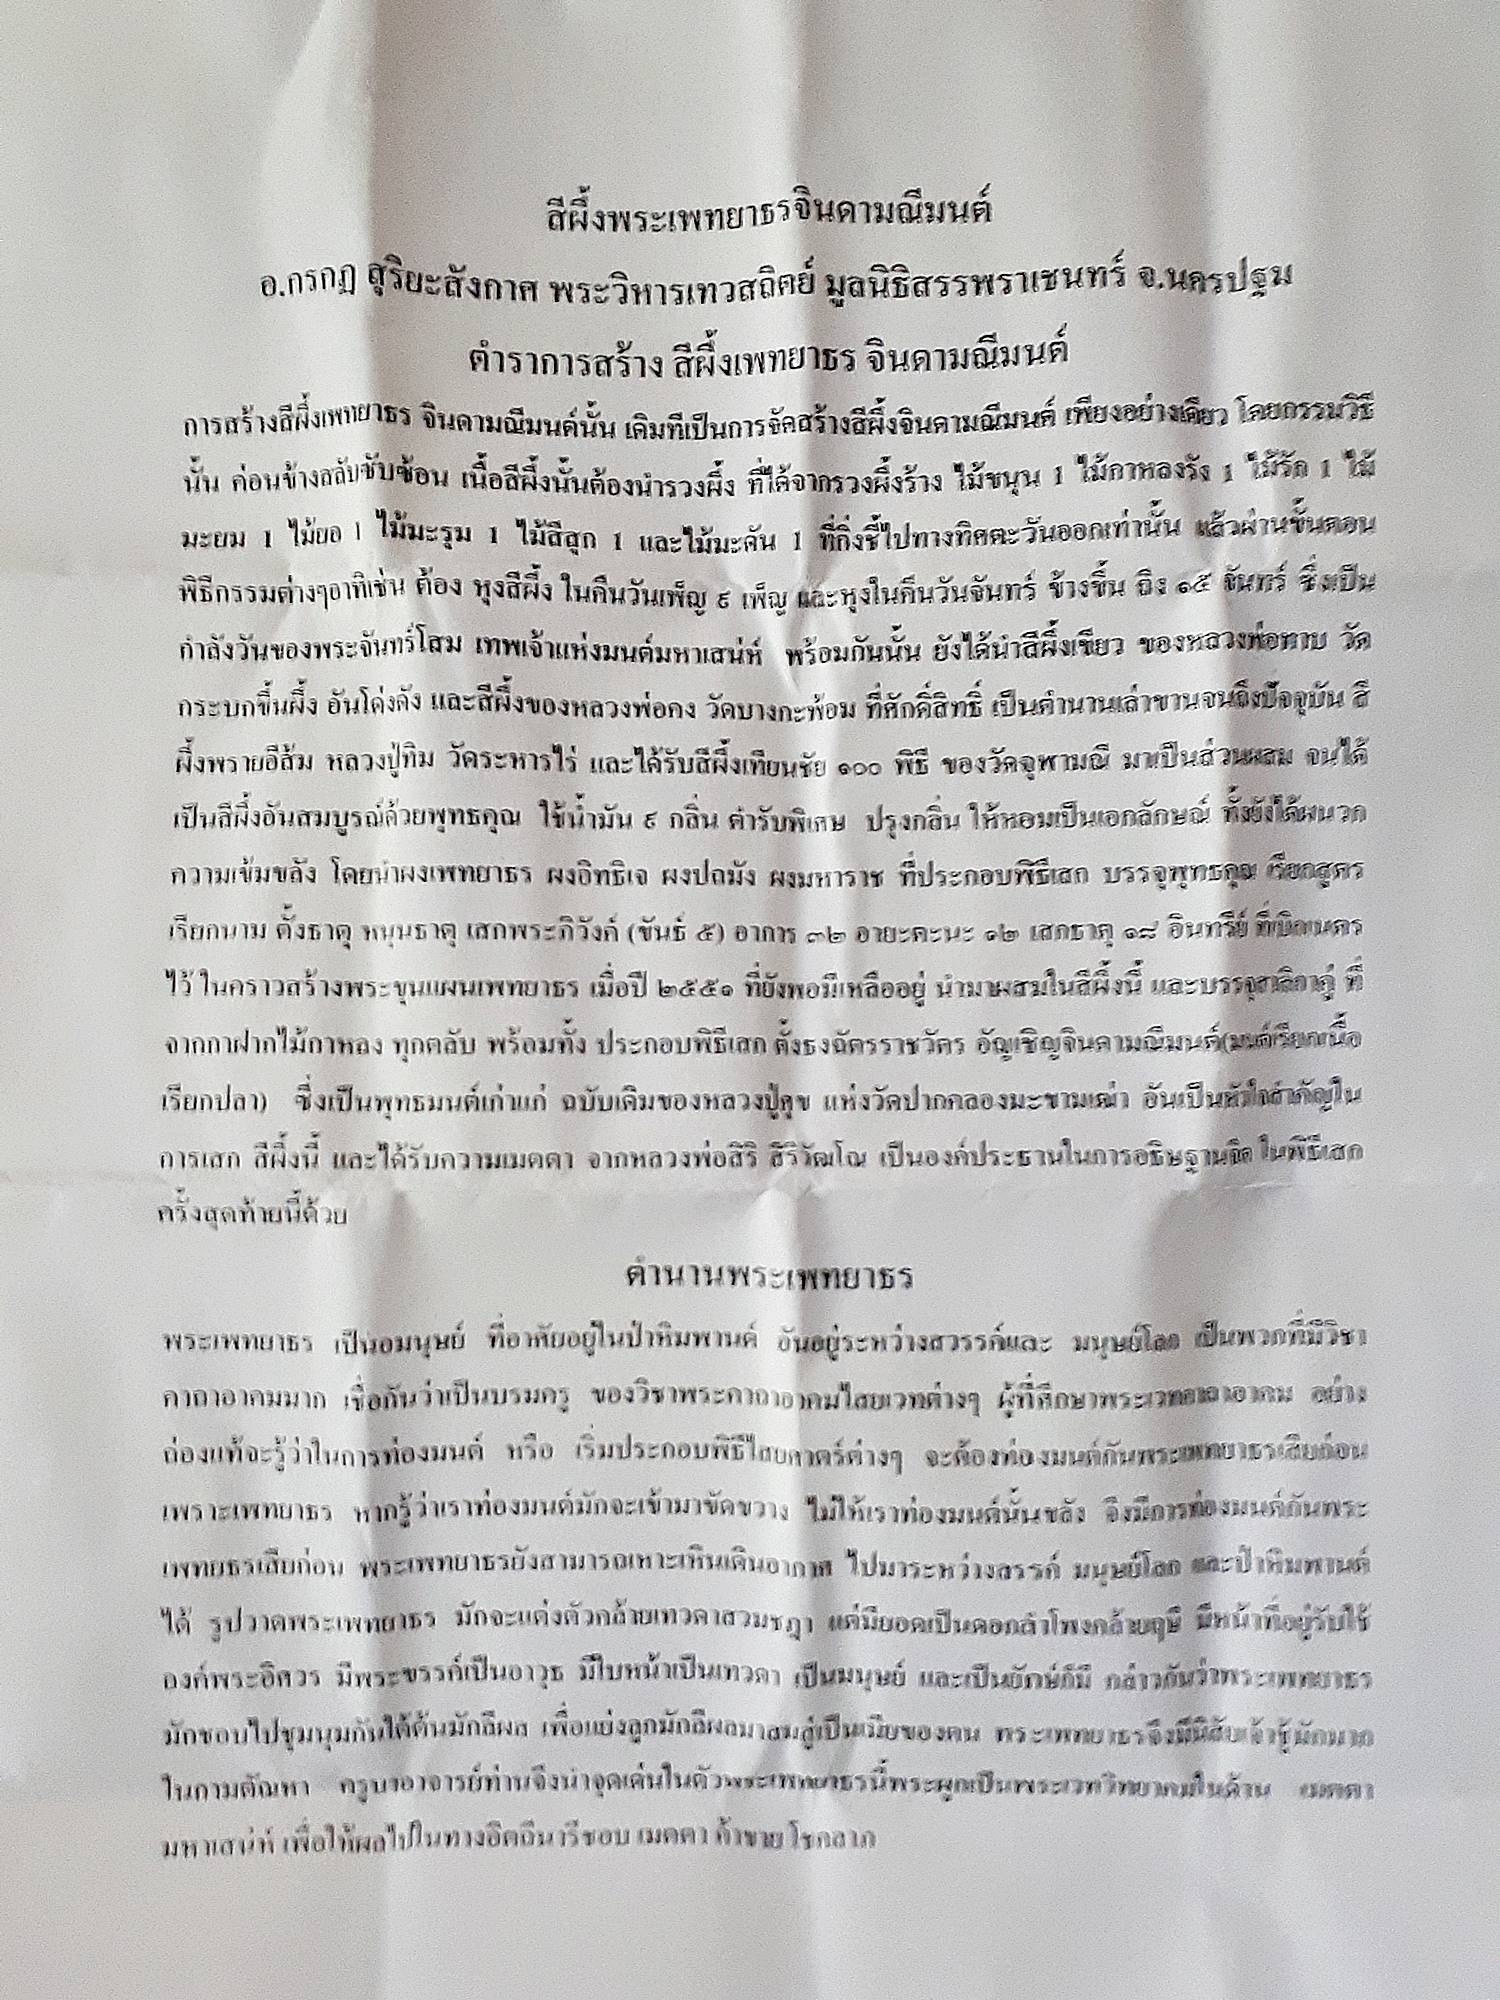 สีผึ้งพระเพทยาธรจินดามณีมนต์
อ.กรกฎ สุริยะสังกาศ พระวิหารเทวสถิตย์ มูลนิธิสรรพราเชนทร์ จ.นครปฐม
ตำราการสร้าง สีผึ้งเพทยาธร จินดามณีมนต์
การสร้างสีผึ้งเพทยาธร จินดามณีมนต์นั้น เดิมทีเป็นการจัดสร้างสีผึ้งจินดามณีมนต์ เพียงอย่างเดียว โดยกรรมวิธี
นั้น ค่อนข้างสลับซับซ้อน เนื้อสีผึ้งนั้นต้องนำรวงผึ้ง ที่ได้จากรวงผึ้งร้าง ไม้ขนุน 1 ไม้กาหลงรัง 1 ไม้รัก 1 ไม้
มะยม 1 ไม้ยอ 1 ไม้มะรุม 1 ไม้สีสุก 1 และไม้มะดัน 1 ที่กิ่งชี้ไปทางทิศตะวันออกเท่านั้น แล้วผ่านขั้นตอน
พิธีกรรมต่างๆอาทิเช่น ต้อง หุงสีผึ้ง ในคืนวันเพ็ญ ๙ เพ็ญ และหุงในคืนวันจันทร์ ข้างขึ้น ถึง ๑๕ จันทร์ ซึ่งเป็น
กำลังวันของพระจันทร์โสม เทพเจ้าแห่งมนต์มหาเสน่ห์ พร้อมกันนั้น ยังได้นำสีผึ้งเขียว ของหลวงพ่อทาบ วัด
กระบกขึ้นผึ้ง อันโด่งดัง และสีผึ้งของหลวงพ่อคง วัดบางกะพ้อม ที่ศักดิ์สิทธิ์ เป็นตำนานเล่าขานจนถึงปัจจุบัน สี
ผึ้งพรายอีส้ม หลวงปู่ทิม วัดระหารไร่ และได้รับสีผึ้งเทียนชัย ๑๐๐ พิธี ของวัดจุฬามณี มาเป็นส่วนผสม จนได้
เป็นสีผึ้งอันสมบูรณ์ด้วยพุทธคุณ ใช้น้ำมัน ๙ กลิ่น ตำรับพิเศษ ปรุงกลิ่น ให้หอมเป็นเอกลักษณ์ ทั้งยังได้ผนวก
ความเข้มขลัง โดยนำผงเพทยาธร ผงอิทธิเจ ผงปถมัง ผงมหาราช ที่ประกอบพิธีเสก บรรจุพุทธคุณ เรียกสูตร
เรียกนาม ตั้งธาตุ หนุนธาตุ เสกพระภิวังค์ (ขันธ์ ๕) อาการ ๓๒ อายะตะนะ ๑๒ เสกธาตุ ๑๘ อินทรีย์ ที่เบิกเนตร
ไว้ ในคราวสร้างพระขุนแผนเพทยาธร เมื่อปี ๒๕๕๑ ที่ยังพอมีเหลืออยู่ นำมาผสมในสีผึ้งนี้ และบรรจุสาลิกาคู่ ที่
จากกาฝากไม้กาหลง ทุกตลับ พร้อมทั้ง ประกอบพิธีเสก ตั้งธงฉัตรราชวัตร อัญเชิญจินดามณีมนต์(มนต์เรียกเนื้อ
เรียกปลา) ซึ่งเป็นพุทธมนต์เก่าแก่ ฉบับเดิมของหลวงปู่ศุข แห่งวัดปากคลองมะขามเฒ่า อันเป็นหัวใจสำคัญใน
การเสก สีผึ้งนี้ และได้รับความเมตตา จากหลวงพ่อสิริ สิริวัฒโณ เป็นองค์ประธานในการอธิษฐานจิต ในพิธีเสก
ครั้งสุดท้ายนี้ด้วย
ตำนานพระเพทยาธร
พระเพทยาธร เป็นอมนุษย์ ที่อาศัยอยู่ในป่าหิมพานต์ อันอยู่ระหว่างสวรรค์และ มนุษย์โลก เป็นพวกที่มีวิชา
คาถาอาคมมาก เชื่อกันว่าเป็นบรมครู ของวิชาพระคาถาอาคมไสยเวทต่างๆ ผู้ที่ศึกษาพระเวทคาถาอาคม อย่าง
ถ่องแท้จะรู้ว่าในการท่องมนต์ หรือ เริ่มประกอบพิธีไสยศาตร์ต่างๆ จะต้องท่องมนต์กันพระเพทยาธรเสียก่อน
เพราะเพทยาธร หากรู้ว่าเราท่องมนต์มักจะเข้ามาขัดขวาง ไม่ให้เราท่องมนต์นั้นขลัง จึงมีการท่องมนต์กันพระ
เพทยธรเสียก่อน พระเพทยาธรยังสามารถเหาะเหินเดินอากาศ ไปมาระหว่างสรรค์ มนุษย์โลก และป่าหิมพานต์
ได้ รูปวาดพระเพทยาธร มักจะแต่งตัวคล้ายเทวดาสวมชฎา แต่มียอดเป็นดอกลำโพงคล้ายฤษี มีหน้าที่อยู่รับใช้
องค์พระอิศวร มีพระขรรค์เป็นอาวุธ มีใบหน้าเป็นเทวดา เป็นมนุษย์ และเป็นยักษ์ก็มี กล่าวกันว่าพระเพทยาธร
มักชอบไปชุมนุมกันใต้ต้นมักลีผล เพื่อแย่งลูกมักลีผลมาสมสู่เป็นเมียของตน พระเพทยาธรจึงมีนิสัยเจ้าชู้มักมาก
ในกามตัณหา ครูบาอาจารย์ท่านจึงนำจุดเด่นในตัวพระเพทยาธรนี้พระผูกเป็นพระเวทวิทยาคมในด้าน เมตตา
มหาเสน่ห์ เพื่อให้ผลไปในทางอิตถีนารีชอบ เมตตา ค้าขาย โชคลาภ